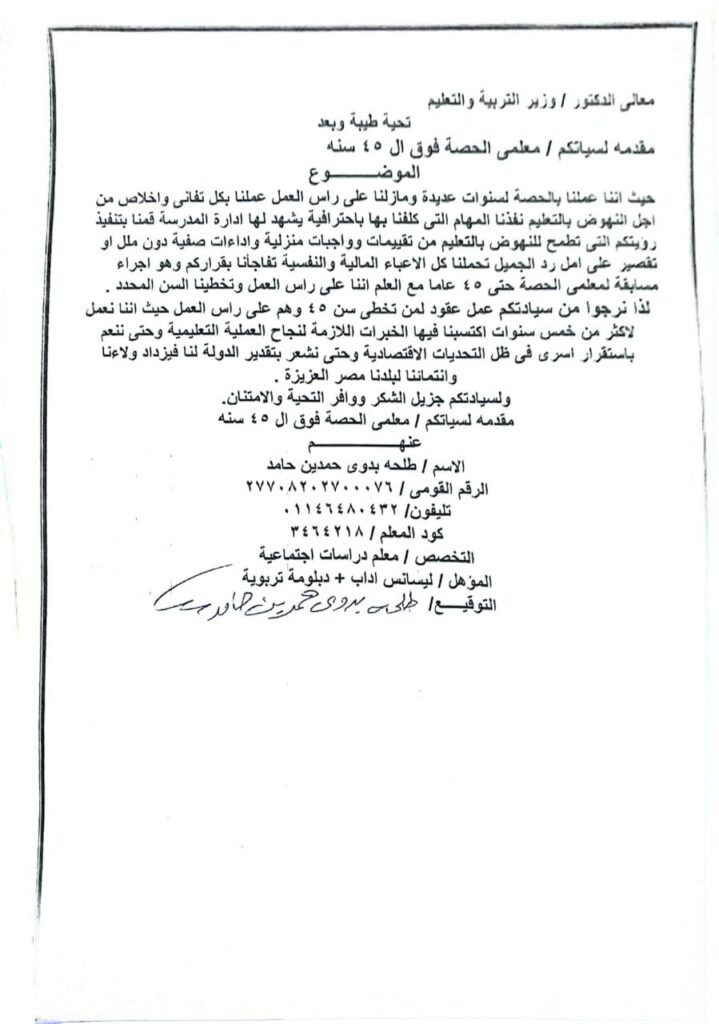 معالى الدكتور / وزير التربية والتعليم
تحية طيبة وبعد
مقدمه لسياتكم / معلمى الحصة فوق ال ٤٥ سنه
الموضــــــــوع
حيث اننا عملنا بالحصة لسنوات عديدة ومازلنا على راس العمل عملنا بكل تفانى واخلاص من
اجل النهوض بالتعليم نفذنا المهام التى كلفنا بها باحترافية يشهد لها ادارة المدرسة قمنا بتنفيذ
رؤيتكم التى تطمح للنهوض بالتعليم من تقييمات وواجبات منزلية واداءات صفية دون ملل او
تقصير على امل رد الجميل تحملنا كل الاعباء المالية والنفسية تفاجأنا بقراركم وهو اجراء
مسابقة لمعلمى الحصة حتى ٤٥ عاما مع العلم اننا على راس العمل وتخطينا السن المحدد .
لذا نرجوا من سيادتكم عمل عقود لمن تخطى سن ٤٥ وهم على راس العمل حيث اننا نعمل
لاكثر من خمس سنوات اكتسبنا فيها الخبرات اللازمة لنجاح العملية التعليمية وحتى ننعم
باستقرار اسرى فى ظل التحديات الاقتصادية وحتى نشعر بتقدير الدولة لنا فيزداد ولاءنا
وانتمائنا لبلدنا مصر العزيزة .
ولسيادتكم جزيل الشكر ووافر التحية والامتنان.
مقدمه لسياتكم / معلمى الحصة فوق ال ٤٥ سنه
عنهــــــــــــــم
الاسم / طلحه بدوى حمدين حامد
الرقم القومى / ٢٧٧٠٨٢٠٢٧٠٠٠٧٦
تليفون/ ٠١١٤٦٤٨٠٤٣٢
كود المعلم / ٣٤٦٤٢١٨
التخصص / معلم دراسات اجتماعية
المؤهل / ليسانس اداب + دبلومة تربوية
التوقيــــع/ طلحه بدوى حمدين حامد